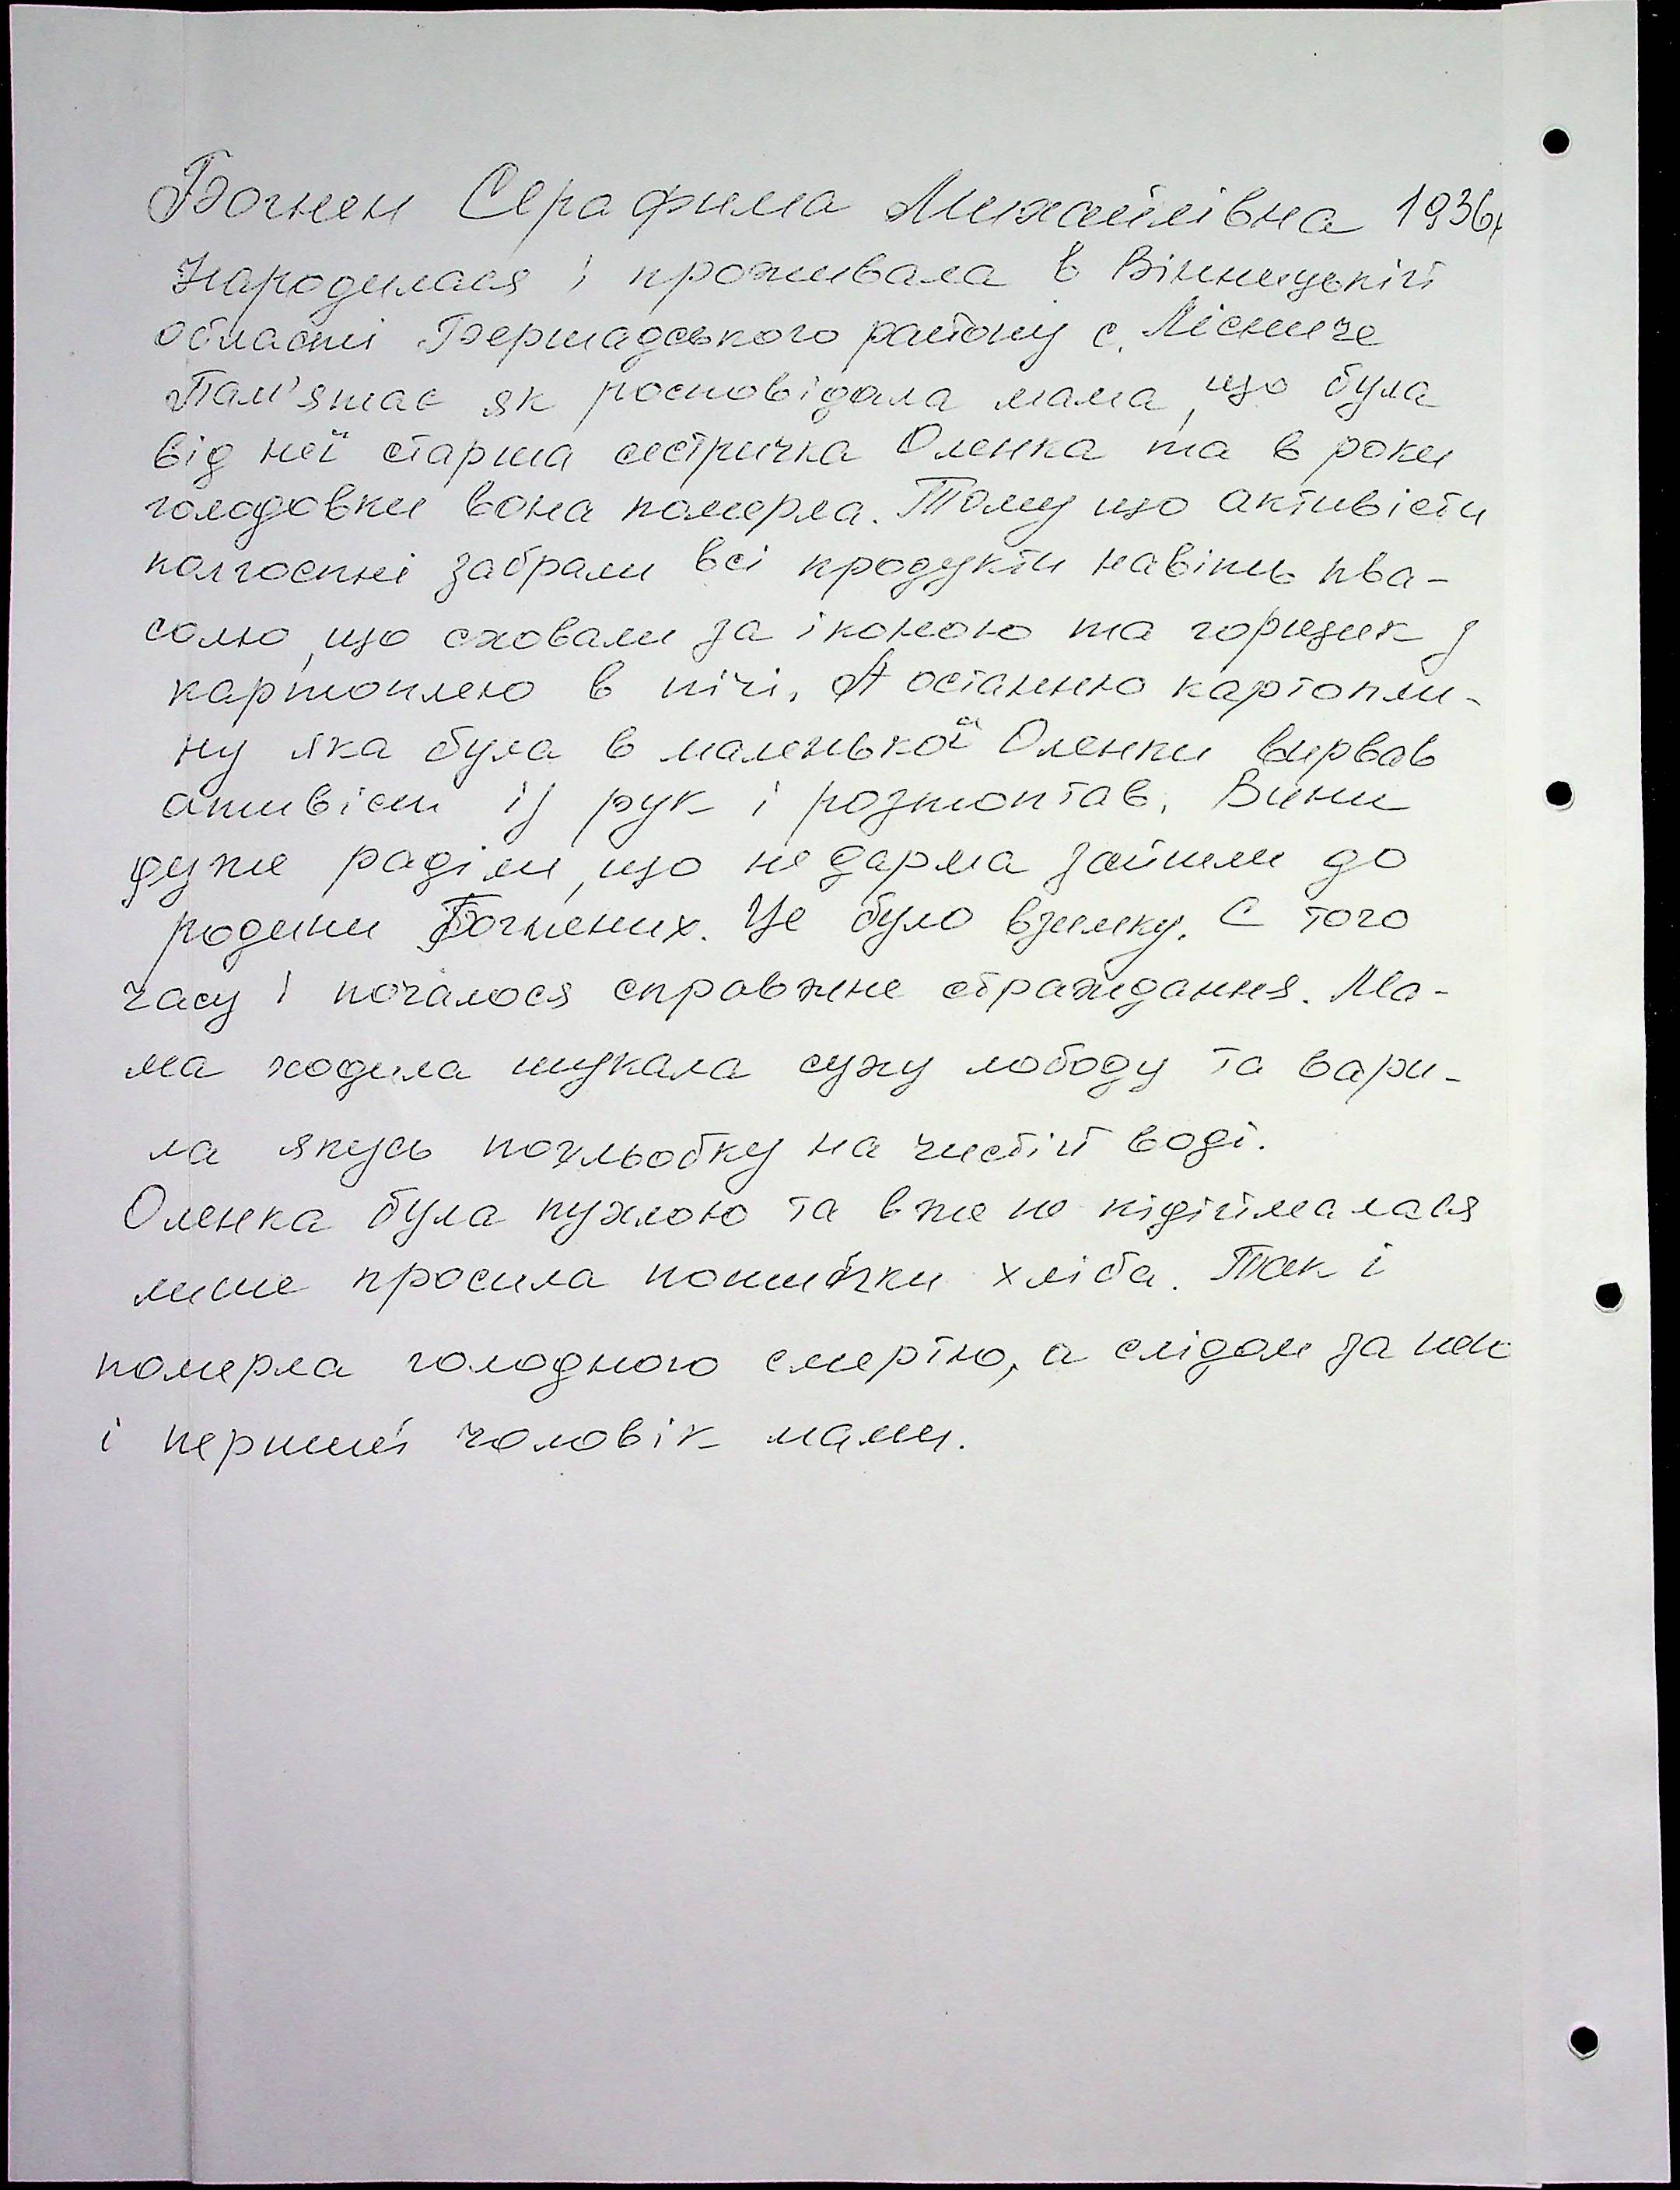 Богнен Серафима Михайлівна 1936р
Народилася і проживала в Вінницькій
області Бершадського району с. Лісниче
Пам'ятає як росповідала мама, що була
від неї старша сестричка Оленка та в роки
голодовки вона померла. Тому що активісти
колгоспні забрали всі продукти навіть ква-
солю, що сховали за іконою та горщик з
картоплею в пічі. А останню картопли-
ну яка була в маленької Оленки вирвав
ативіст із рук і розтоптав. Вини
дуже раділи, що не дарма зайшли до
родини Богнених. Це було взимку. С того
часу і почалося справжнє страждання. Ма-
ма ходила шукала суху лободу та вари-
ла якусь похльобку на чистій воді.
Оленка була пухлою та вже не підіймалася
лише просила
хліба. Так і
померла голодною смертю, а слідом за нею
і перший чоловік мами.